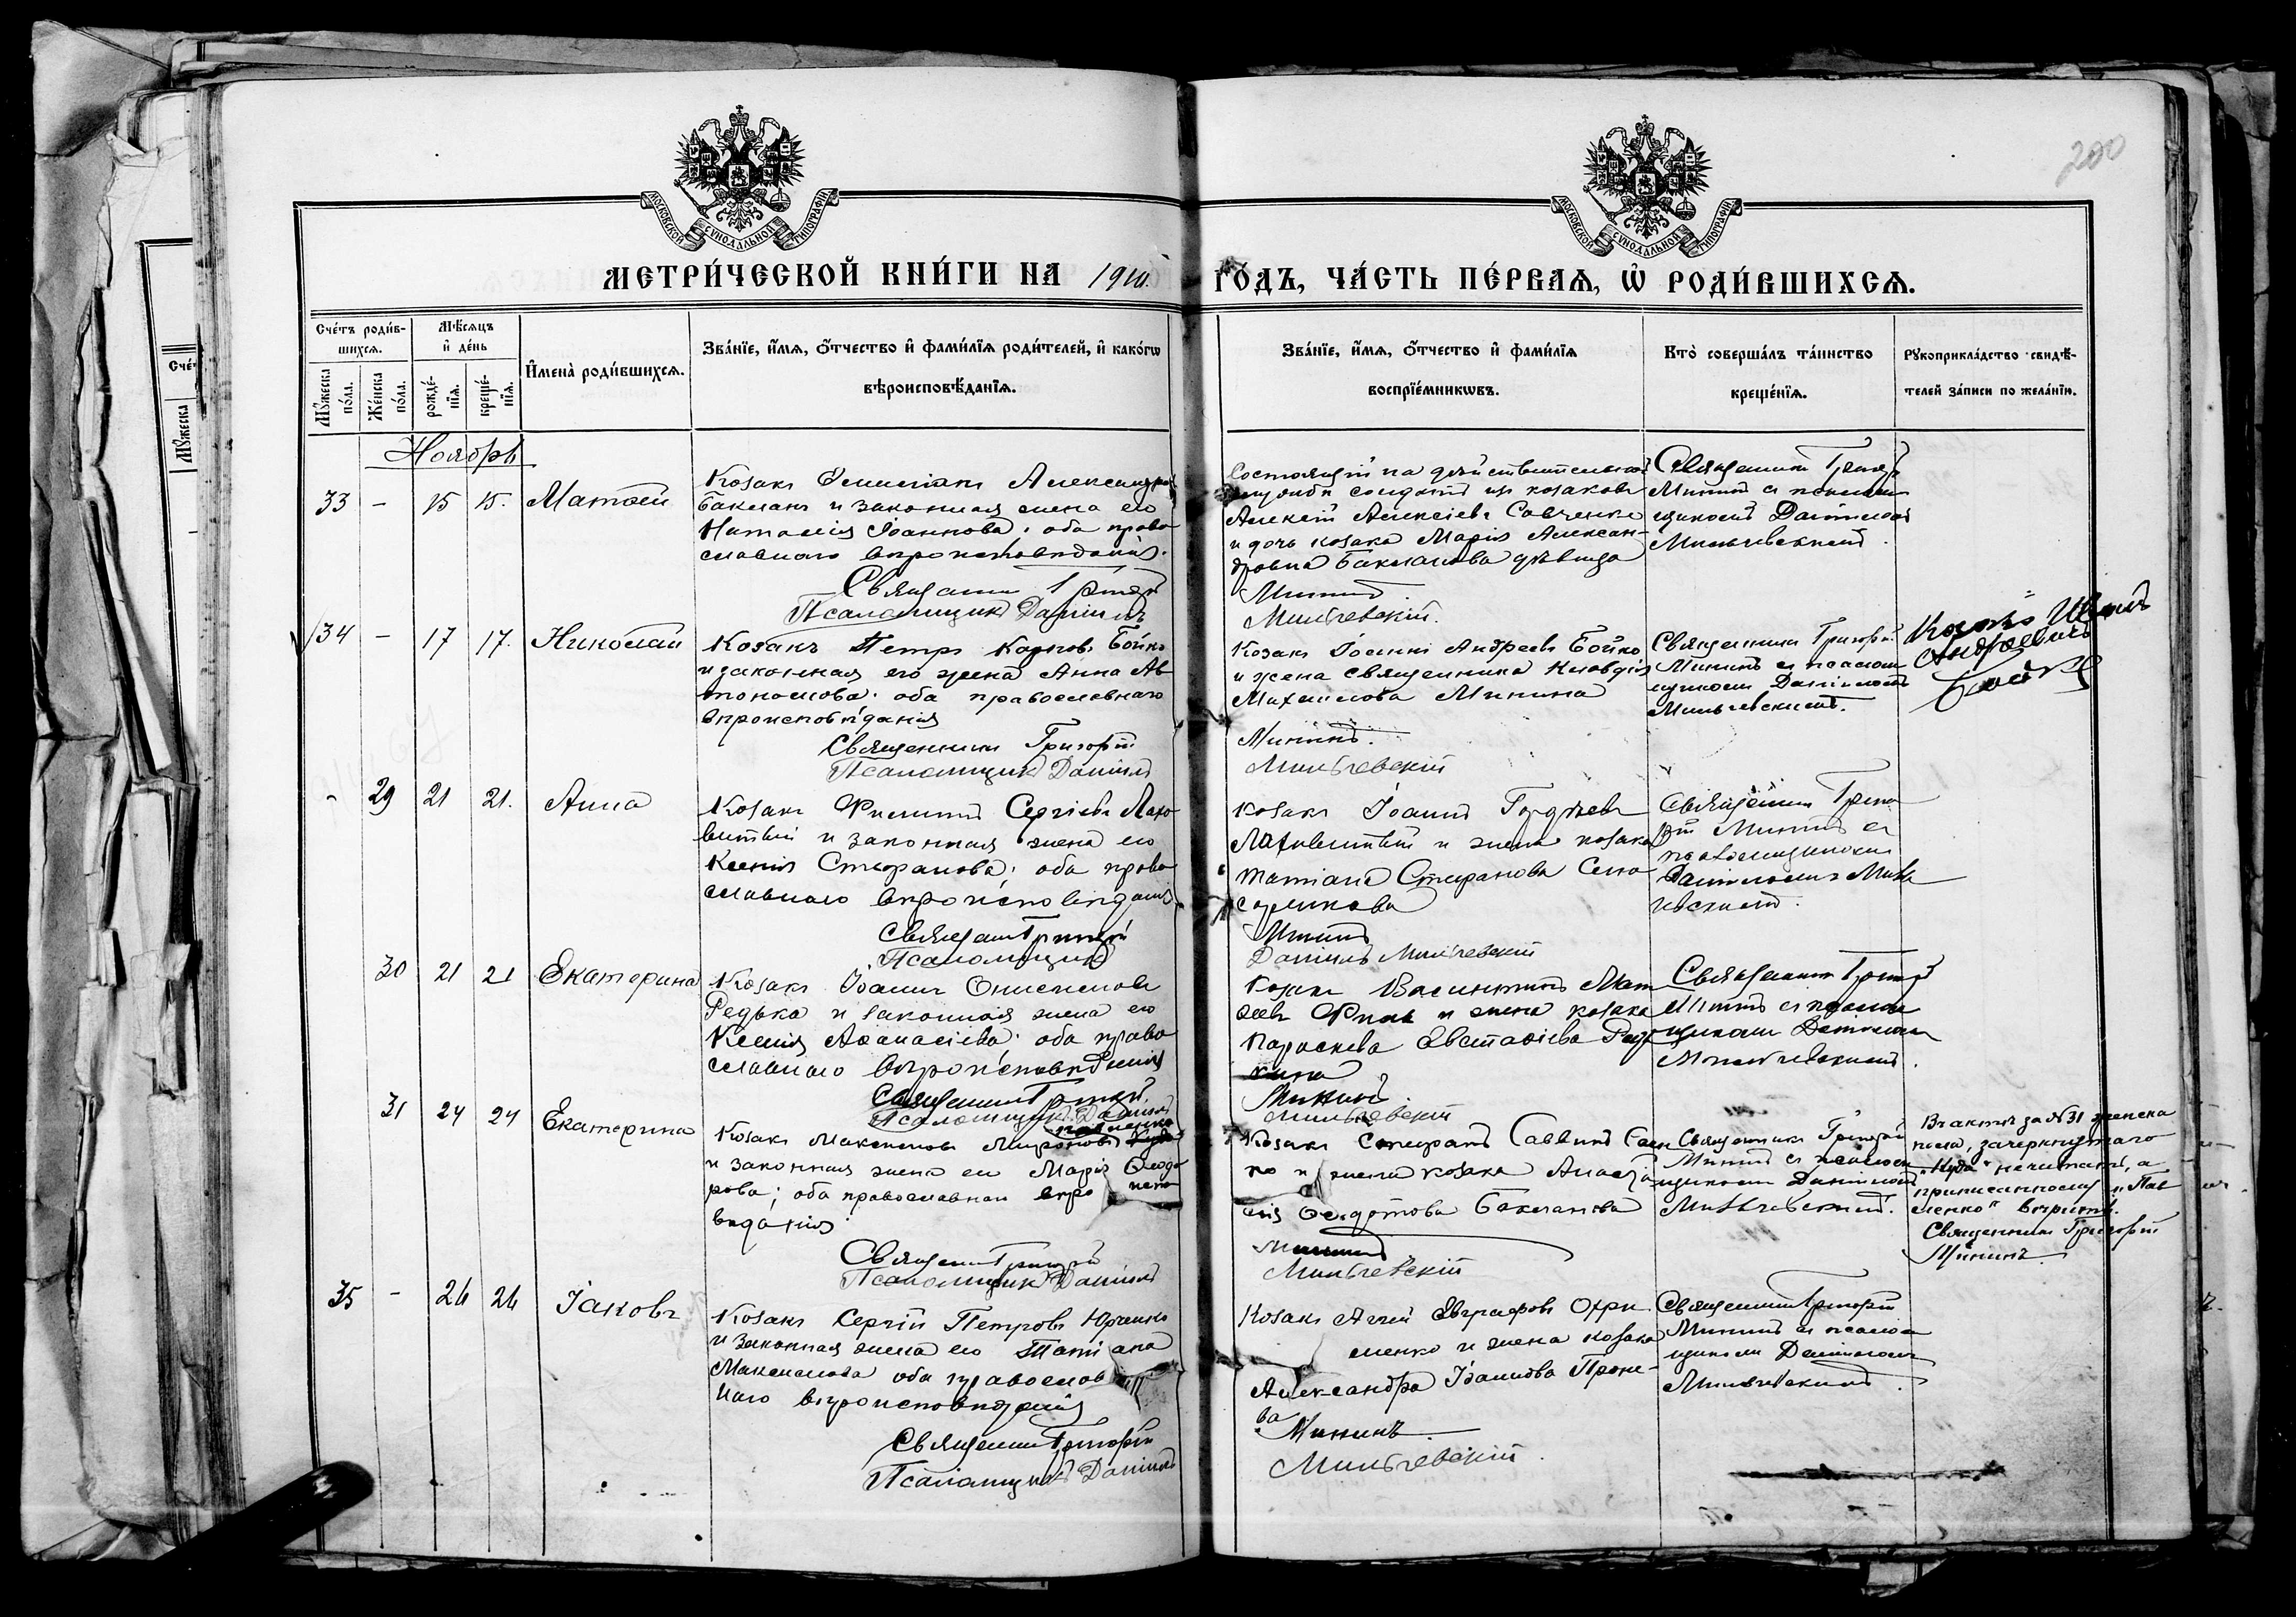 200
МОСКОВСКОЙ СУНОДАЛЬНОЙ ТИПОГРАФІИ
МОСКОВСКОЙ СУНОДАЛЬНОЙ ТИПОГРАФІИ
МЕТРИ́ЧЕСКОЙ КНИ́ГИ НА 1910 ГО́ДЪ, ЧА́СТЬ ПЕ́РВАѦ, Ѡ҆ РОДИ́ВШИХСѦ.
Сче́тъ роди́в-
шихсѧ.
Мѣ́сѧцъ
и҆ де́нь
Мꙋ́жеска по́ла.
Же́нска по́ла.
рожде́-
нїѧ.
креще́-
нїѧ.
И҆мена̀ роди́вшихсѧ.
Зва́нїе, и҆́мѧ, ѻ҆́тчество и҆ фами́лїѧ роди́телей, и҆ како́гѡ
вѣроисповѣ́данїѧ.
Зва́нїе, и҆́мѧ, ѻ҆́тчество и҆ фами́лїѧ
воспрїе́мникѡвъ.
Кто̀ соверша́лъ та́инство
креще́нїѧ.
Рꙋкоприкла́дство свидѣ́-
телей за́писи по жела́нїю.
Ноябрь
33 - 15 15. Матѳей
Козакъ Емиліанъ Александровъ
Бакланъ и законная жена его
Наталія Іоаннова; оба право
славнаго вѣроисповѣданія.
Священникъ Григорій
Псаломщикъ Даніилъ
Состоящій на дѣйствительной
службѣ солдатъ изъ козаковъ
Алексій Алексіевъ Савченко
и дочь козака Марія Алексан-
дровна Бакланова дѣвица
Мининъ
Мильчевскій.
Священникъ Григорій
Мининъ съ псалом
щикомъ Даніиломъ
Мильчевскимъ.
34 - 17 17. Николай
Козакъ Петръ Карповъ Бойко
и законная его жена Анна Ав
тономова; оба православнаго
вѣроисповѣданія
Священникъ Григорій
Псаломщикъ Даніилъ
Козакъ Іоаннъ Андреевъ Бойко
и жена священника Клавдія
Михаилова Минина
Мининъ.
Мильчевскій
Священникъ Григорій
Мининъ съ псалом
щикомъ Даніиломъ
Мильчевскимъ.
Иванъ
Андреевичъ
Бойко
- 29 21 21. Анна
Козакъ Филиппъ Сергіевъ Лахо
витый и законная жена его
Ксенія Стефанова; оба право
славнаго вѣроисповѣданія
Священникъ Григорій
Псаломщикъ
Козакъ Іоаннъ Гордѣевъ
Лаховитый и жена козака
Татіана Стефанова
Мининъ
Даніилъ Мильчевскій
Священникъ Григо
рій Мининъ съ
псаломщикомъ
Даніиломъ Миль
чевскимъ.
30 21 21 Екатерина
Козакъ Іоаннъ Онисимовъ
Редька и законная жена его
Ксенія Аѳанасіева; оба право
славнаго вѣроисповѣданія
Священникъ Григорій
Псаломщикъ Даніилъ
Козакъ Мат
ѳеевъ и жена козака
Параскева Евстаѳіева Редь
кина
Мининъ
Мильчевскій
Священникъ Григорій
Мининъ съ псалом
щикомъ Даніиломъ
Мильчевскимъ.
31 24 24 Екатерина
Павленко
Козакъ Максимъ Мироновъ Куда
и законная жена его Марія Ѳеодо
рова; оба православнаго вѣро испо
вѣданія
Священникъ Григорій
Псаломщикъ Даніилъ
Козакъ Стефанъ Саввинъ
и жена козака Анаста
сія Ѳедотова Бакланова
Мининъ
Мильчевскій
Священникъ Григорій
Мининъ съ псалом
щикомъ Даніиломъ
Мильчевскимъ.
Въ актѣ за №31 женска
пола, зачеркнутаго
„Куда“ не читать, а
приписанному „Пав
ленко“ вѣрить.
Священникъ Григорій
Мининъ
35 - 26 26 Іаковъ
Козакъ Сергій Петровъ Юрченко
и законная жена его Татіана
Максимова оба православ
наго вѣроисповѣданія
Священникъ Григорій
Псаломщикъ Даніилъ
Козакъ Аггей Евграфовъ Охри
менко и жена козака
Александра Іоаннова Проне-
ва
Мининъ
Мильчевскій.
Священникъ Григорій
Мининъ съ псалом
щикомъ Даніиломъ
Мильчевскимъ.